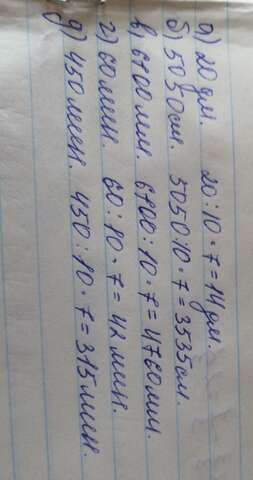 а) 20 дм. 20:10·7=14 дм
б) 5050 см. 5050:10·7=3535 см.
в) 6800 мм. 6800:10·7=4760 мм.
г) 60 мин. 60:10·7=42 мин.
д) 450 мин. 450:10·7=315 мин.